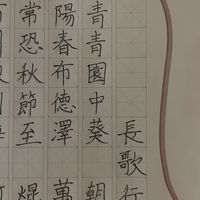 長歌行
青青園中葵朝
陽春布德澤萬
常恐秋節至焜